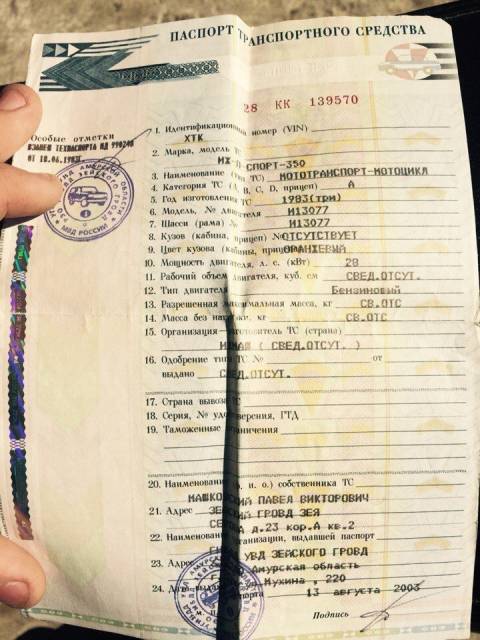 ПАСПОРТ ТРАНСПОРТНОГО СРЕДСТВА
28 КК 139570
Особые отметки
ВЗАМЕН ТЕХПАСПОРТА НД 990240
ОТ 18.06.1983г
1. Идентификационный номер (VIN)
ХТК
2. Марка, модель ТС
СПОРТ-350
3. Наименование (тип ТС) МОТОТРАНСПОРТ-МОТОЦИКЛ
4. Категория ТС (A, B, C, D, прицеп) А
5. Год изготовления ТС 1983(три)
6. Модель, № двигателя М13077
7. Шасси (рама) № М13077
8. Кузов (кабина, прицеп) № ОТСУТСТВУЕТ
9. Цвет кузова (кабины, прицепа) ОРАНЖЕВЫЙ
10. Мощность двигателя, л. с. (кВт) 28
11. Рабочий объем двигателя, куб. см СВЕД.ОТСУТ.
12. Тип двигателя Бензиновый
13. Разрешенная максимальная масса, кг СВ.ОТС
14. Масса без нагрузки, кг СВ.ОТС
15. Организация—изготовитель ТС (страна)
ИЖМАШ ( СВЕД.ОТСУТ. )
16. Одобрение типа ТС № от
выдано СВЕД.ОТСУТ.
17. Страна вывоза ТС
18. Серия, № удостоверения, ГТД
19. Таможенные ограничения
20. Наименование (ф. и. о.) собственника ТС
МАШКОВСКИЙ ПАВЕЛ ВИКТОРОВИЧ
21. Адрес ЗЕЙСКИЙ ГРОВД ЗЕЯ
д.23 кор.А кв.2
22. Наименование организации, выдавшей паспорт
УВД ЗЕЙСКОГО ГРОВД
23. Адрес Амурская область
Мухина , 220
24. Дата выдачи паспорта 13 августа 2003
Подпись
МВД РОССИИ